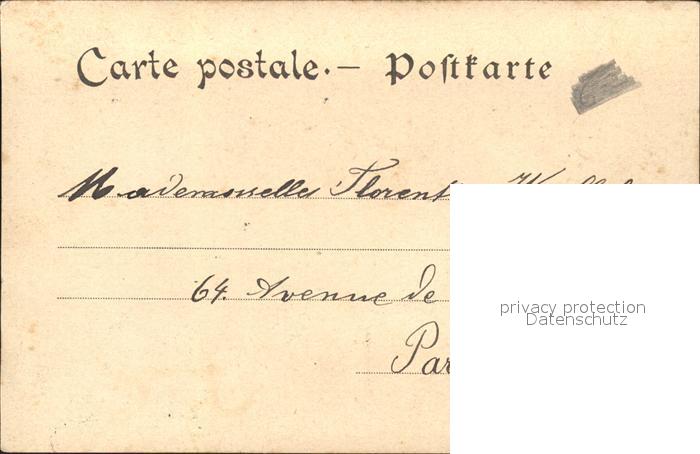 Carte postale.— Postkarte
Mademoiselle Florent
64. Avenue de
Par
privacy protection
Datenschutz